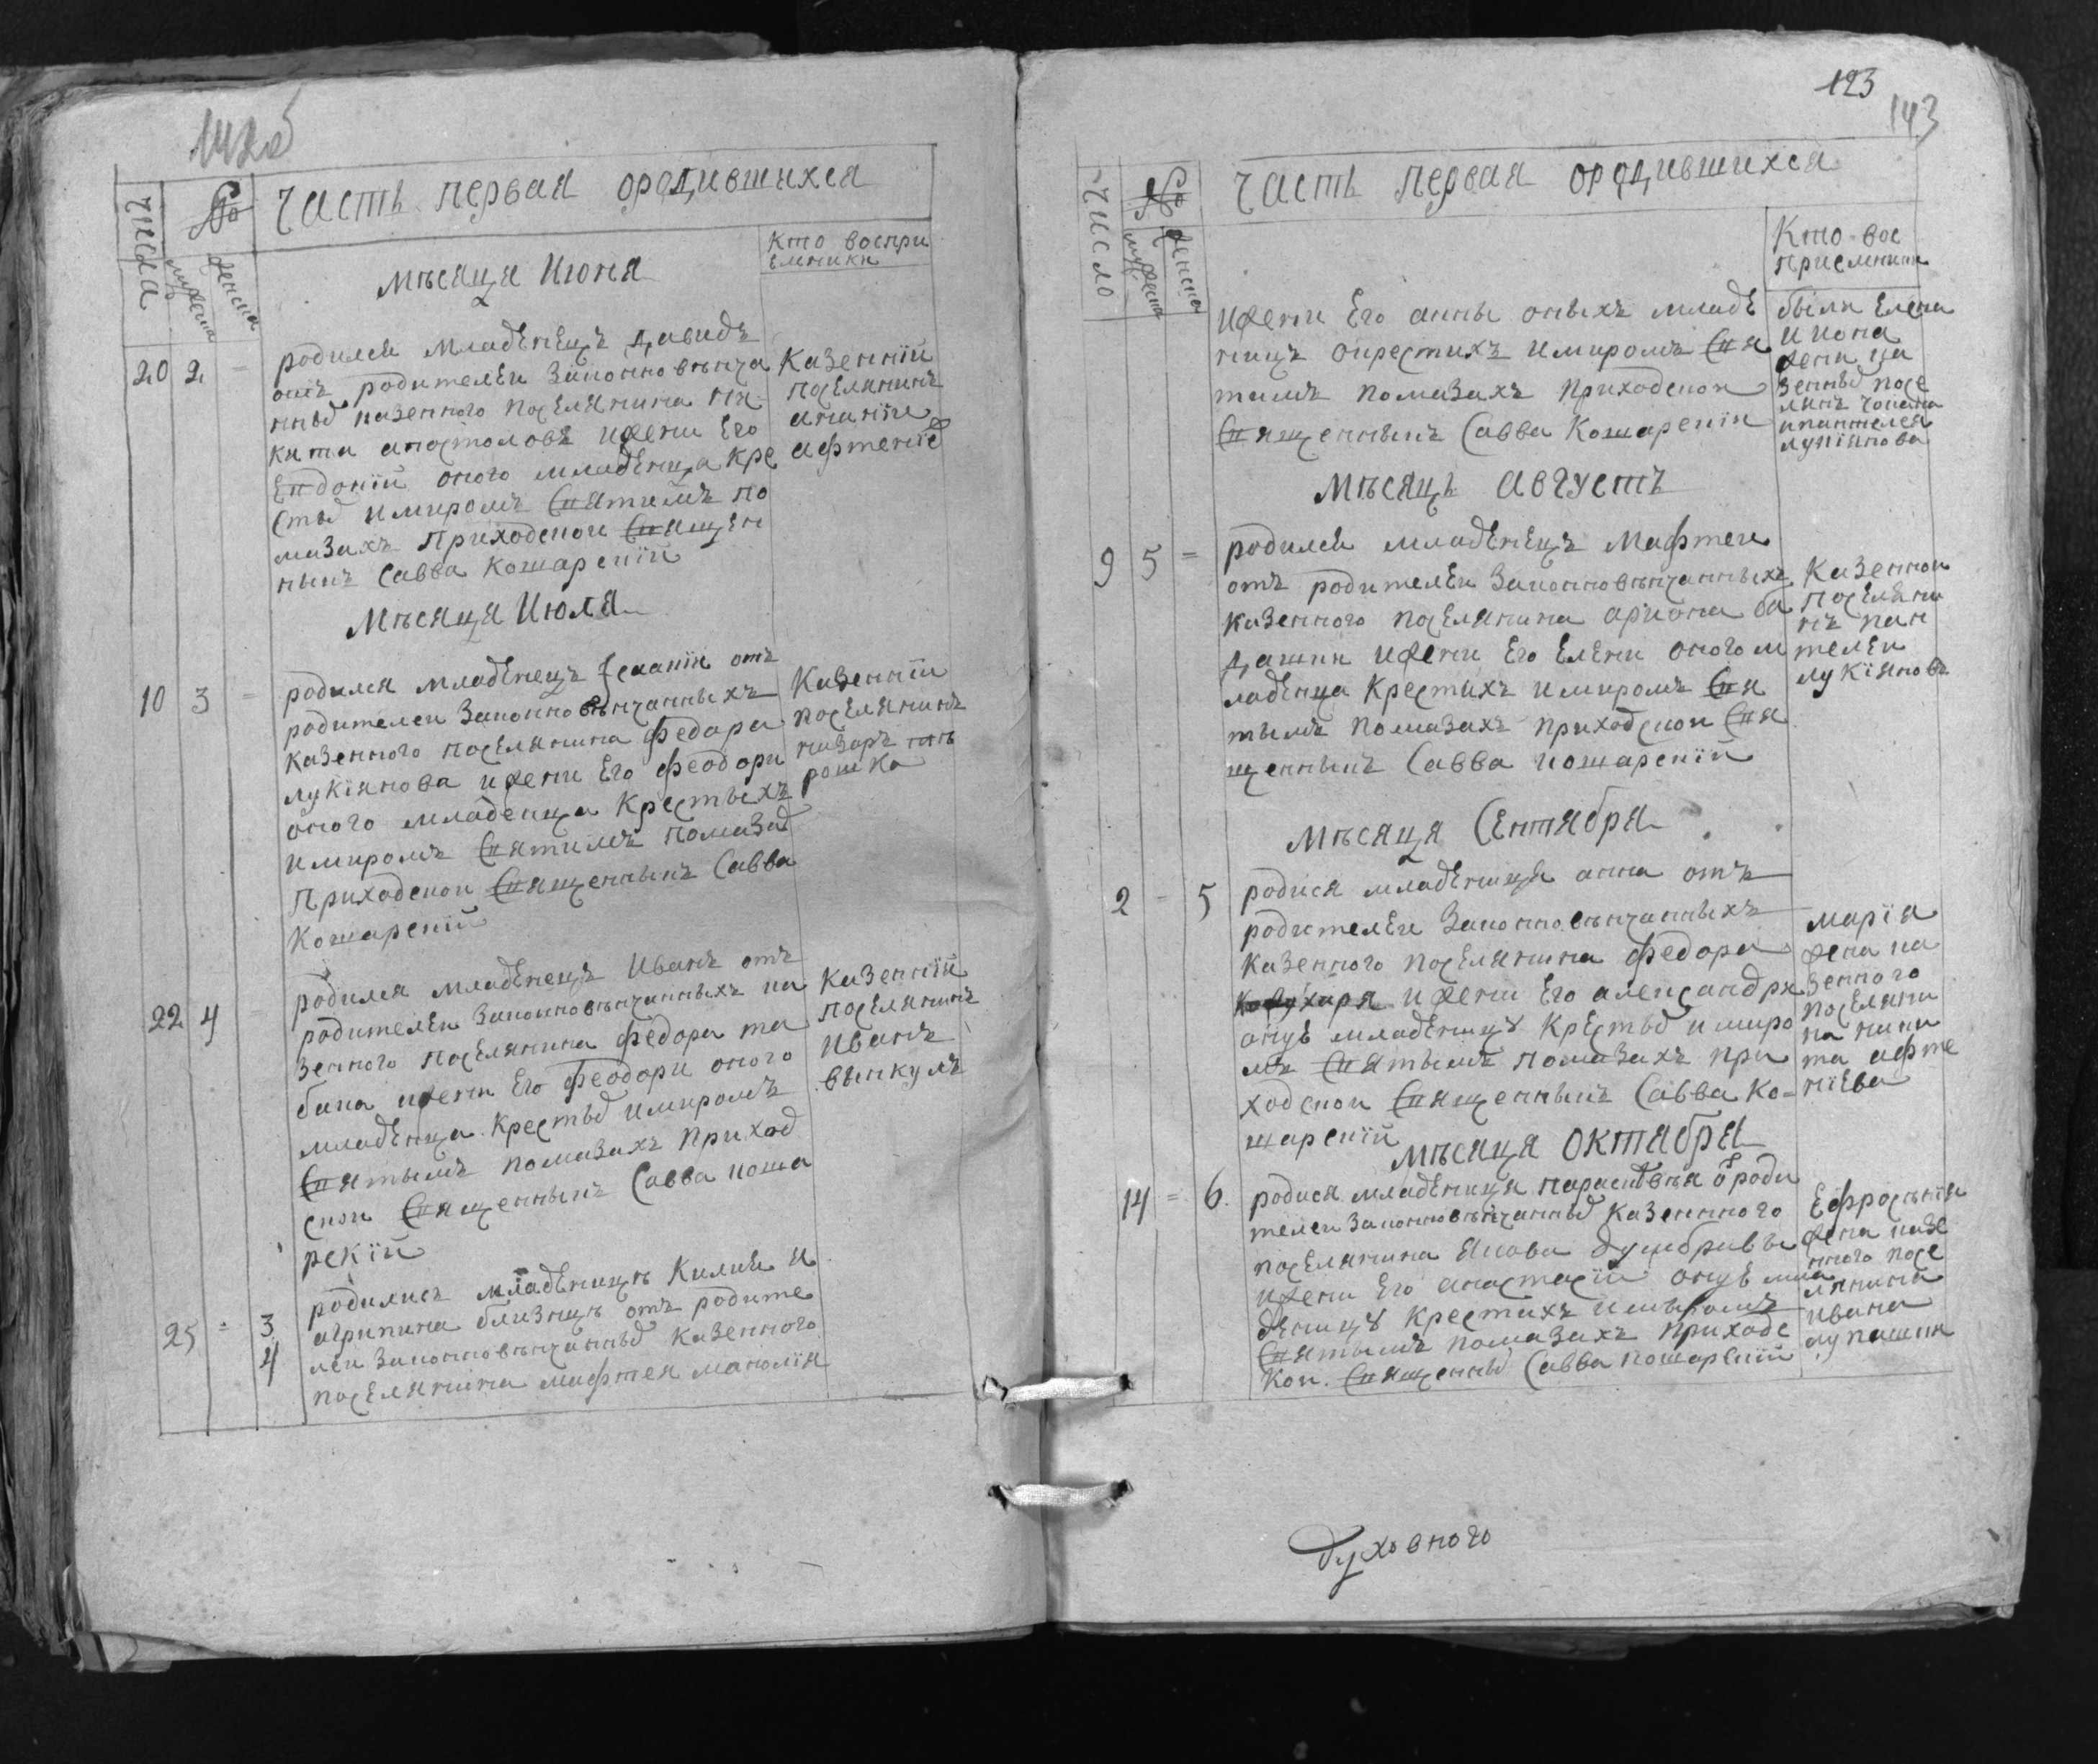 142об
Числа
№
мужеска
женска
Часть первая ородившихся
Кто воспри
Емники
Мѣсяца Июня
20 2 =
родился младЕнЕцъ Давидъ
отъ родителЕи Законновѣнча
ннЫ казенного посЕлянина Ни
кити апостоловъ ижени Его
Евдокїй оного младЕнца Кре
стЫ имиромъ Святимъ по
мазахъ приходскои СвящЕн
ныкъ Савва Кошарскїй
Казеннїй
посЕлянинъ
ананїи
афтенїЕ
Мѣсяца Июля
10 3 =
родился младЕнецъ отъ
родителеи Законновѣнчанныхъ
казенного посЕлянина Федора
лукїянова ижени Его Феодори
оного младенца Крестыхъ
имиромъ Святимъ помазаЫ
Приходскои Священныкъ Савва
Кошарскїй
Казеннїй
посЕлянинъ
назаръ
рошка
22 4
родился младЕнецъ Иванъ отъ
родителЕи Законновѣнчанныхъ ка
зенного посЕлянина Федора та
бака ижени Его Феодори оного
младЕнца КрестЫ имиромъ
Святымъ помазахъ приход
скои Священныкъ Савва коша
рскїй
Казеннїй
посЕлянинъ
Иванъ
вынкулъ
25 = 3
4
родились младЕницѣ Килина И
агрипина близнцѣ отъ родите
лЕи ЗаконновѣнчаннЫ казенного
посЕлянина мафтея манолїя
123
143
Число
№
мужеска
женска
Часть первая ородившихся
Кто вос
приемники
ижени Его анны оныхъ младЕ
ницъ окрестихъ имиромъ Свя
тимъ помазахъ приходскои
Священныкъ Савва Кошарскїй
были Елена
и иона
жени ка
зеннЫ посе
лянъ
ипантелея
лукїянова
Мѣсяцъ августъ
9 5 =
родился младЕнЕцъ Мафтеи
отъ родителЕи Законновѣнчанныхъ
казенного посЕлянина ариона ба
дашки ижени Его Елени оного м
ладЕнца Крестихъ имиромъ Свя
тымъ помазахъ приходскои Свя
щенныкъ Савва кошарскїй
Казеннои
посЕляни
нъ пан
телЕи
лукїяновъ
Мѣсяца Сентября
2 = 5
родися младЕница анна отъ
родителЕи Законновѣнчанныхъ
казенного посЕлянина Федора
ижени Его алеѯандри
онуЕ младЕницу КрЕстЫ имиро
мъ Святымъ помазахъ при
ходскои Священныкъ Савва Ко=
шарскїй
Марїя
жена ка
зенного
посЕляни
на ники
та афте
нїЕва
Мѣсяца Октября
14 = 6
родися младЕница параскѣвѣя ѿ роди
телеи ЗаконновѣнчаннЫ казенного
посЕлянина Якова думбравы
ижени Его анастасїи онуЕ мла
дЕницу Крестихъ имиромъ
Святымъ помазахъ приходс
кои СвященнЫ Савва кошарскїй
Ефросынїя
жена казе
нного посе
лянина
ивана
лупашки
духовного